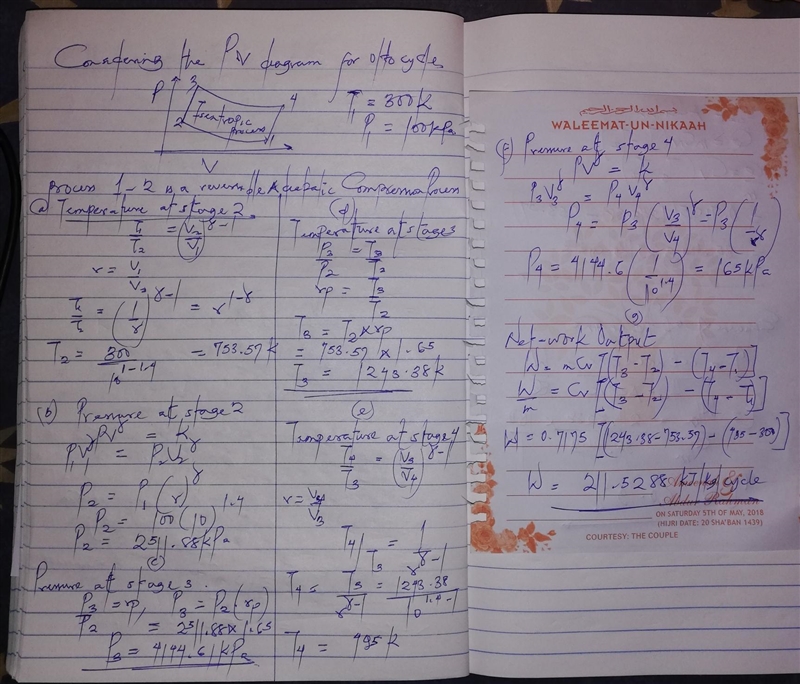 Considering the PV diagram for otto cycle
P
3
4
2
1
Isentropic
process
V
T₁ = 300K
P₁ = 100kPa
Process 1-2 is a reversible Adiabatic Compression Process
(a) Temperature at stage 2
T₁/T₂ = (V₂/V₁)^γ-1
r = V₁/V₂
T₁/T₂ = (1/r)^γ-1 = r^1-γ
T₂ = 300/10^1-1.4 = 753.57K
(b) Pressure at stage 2
PV^γ = K
P₁V₁^γ = P₂V₂^γ
P₂ = P₁(r)^γ
P₂ = 100(10)^1.4
P₂ = 2511.88kPa
(c)
Pressure at stage 3.
P₃/P₂ = rp, P₃ = P₂(rp)
= 2511.88 x 1.65
P₃ = 4144.61kPa
(d)
Temperature at stage 3
P₃/P₂ = T₃/T₂
rp = T₃/T₂
T₃ = T₂ x rp
= 753.57 x 1.65
T₃ = 1243.38K
(e)
Temperature at stage 4
T₄/T₃ = (V₃/V₄)^γ-1
r = V₄/V₃
T₄/T₃ = 1/r^γ-1
T₄ = T₃/r^γ-1 = 1243.38/10^1.4-1
T₄ = 495K
WALEEMAT-UN-NIKAAH
(f) Pressure at stage 4
PV^γ = k
P₃V₃^γ = P₄V₄^γ
P₄ = P₃(V₃/V₄)^γ = P₃(1/r^γ)
P₄ = 4144.6(1/10^1.4) = 165kPa
(g)
Net-work Output
W = mCv[(T₃-T₂) - (T₄-T₁)]
W/m = Cv[(T₃-T₂) - (T₄-T₁)]
W = 0.7175[(1243.38-753.57) - (495-300)]
W = 211.5288 kJ/kg cycle
ON SATURDAY 5TH OF MAY, 2018
(HIJRI DATE: 20 SHA'BAN 1439)
COURTESY: THE COUPLE